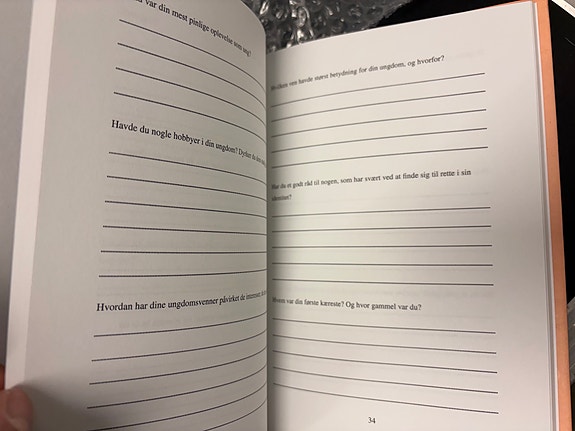 var din mest pinlige oplevelse som ung?
Havde du nogle hobbyer i din ungdom? Dyrker du
Hvordan har dine ungdomsvenner påvirket de interesser,
Hvilken ven havde størst betydning for din ungdom, og hvorfor?
Har du et godt råd til nogen, som har svært ved at finde sig til rette i sin
identitet?
Hvem var din første kæreste? Og hvor gammel var du?
34